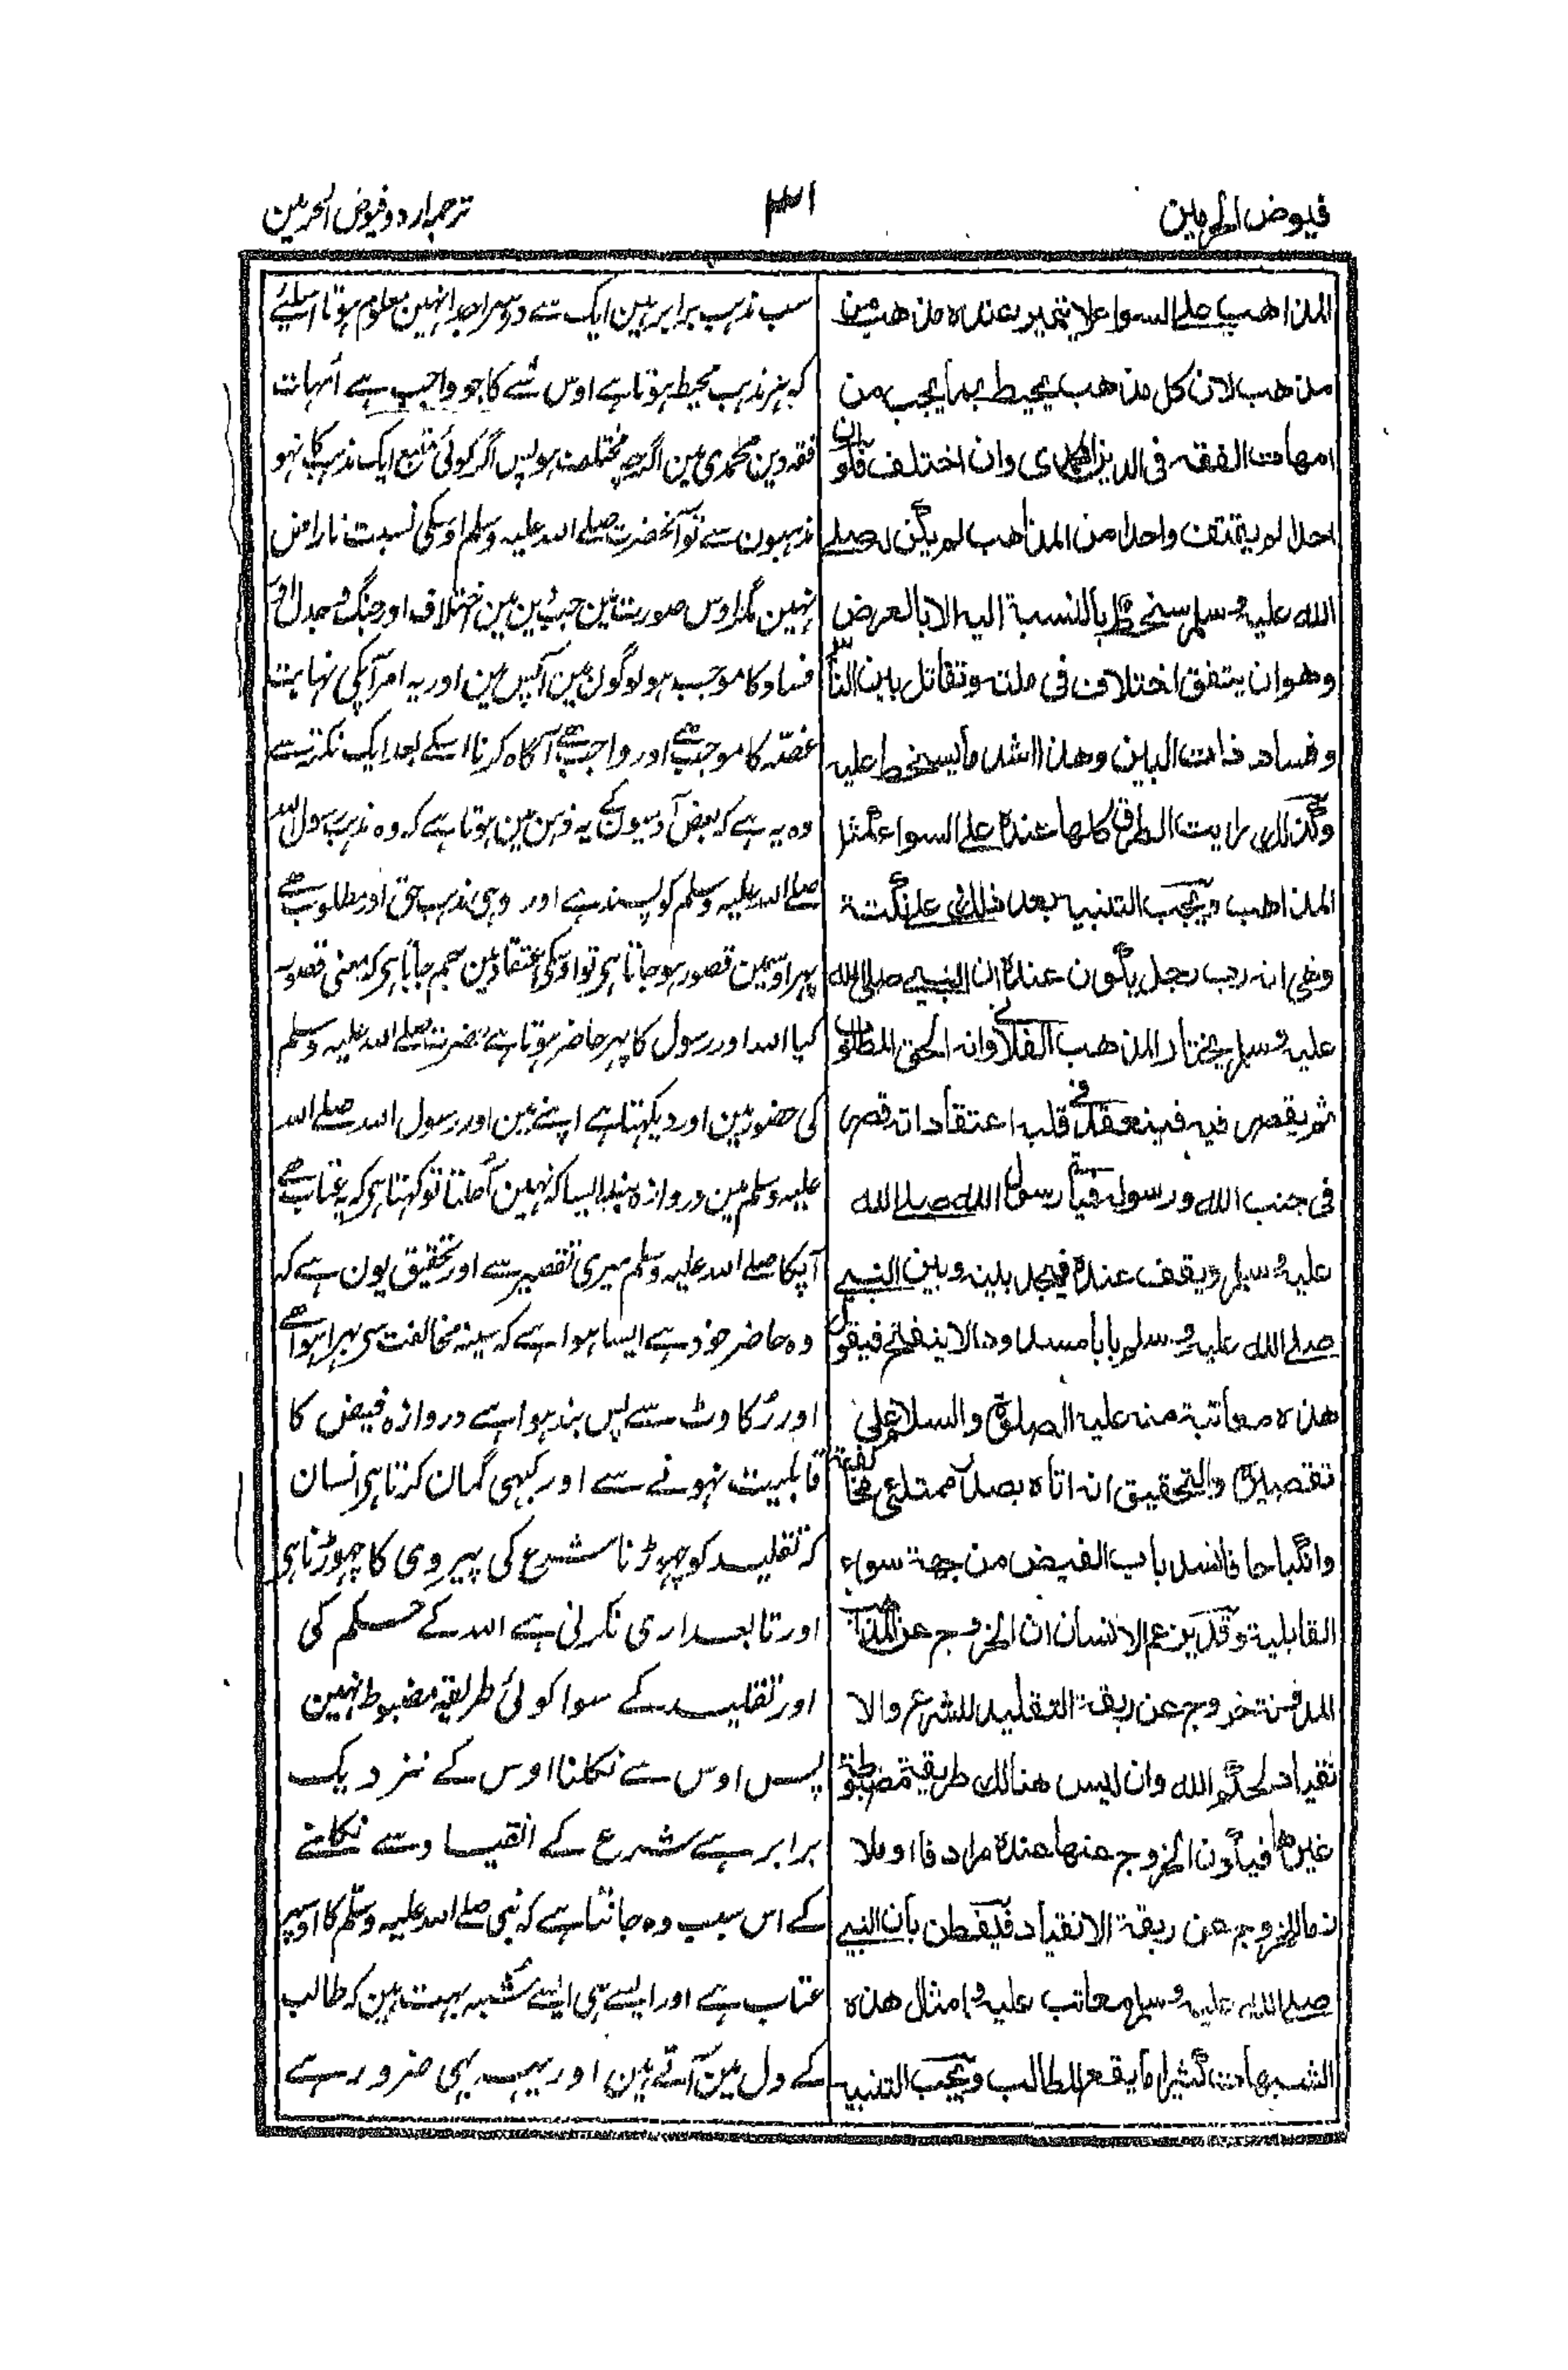 فیوض الحرمین
۳۱
ترجمہ اردو فیوض الحرمین
المذاهب علے السواء لا یتمیز عنده مذهب من
مذهب لان كل مذهب یحیط بما یجب من
امهات الفقه فی الدین المحمدی وان اختلف فلو ان
احدا لم یقتف واحدا من المذاهب لم یكن له صلے
الله علیه وسلم سخط بالنسبة الیه الا بالعرض
وهو ان یتفق اختلاف فی ملته وتقاتل بین الناس
وفساد ذات البین وهذا اشد ما یسخط علیه
وكذلك رایت الطرق كلها عنده علی السواء كمثل
المذاهب ویجب التنبیه بعد ذلك علی نكتة
وهی انه رب رجل یكون عنده ان النبی صلی الله
علیه وسلم یختار المذهب الفلانی وانه الحق المطلوب
ثم یقصر فیه فینعقد فی قلبه اعتقاد انه قصر
فی جنب الله ورسوله فیأتی رسول الله صلے الله
علیه وسلم ویقف عنده فیجد بینه وبین النبی
صلے الله علیه وسلم بابا مسدودا لا ینفتح فیقول
هذه معاتبة منه علیه الصلوة والسلام علی
تقصیره والتحقیق انه اتاه بصدر ممتلئ مخالفة
وانكباحا فانسد باب الفیض من جهة سوء
القابلیة وقد یزعم الانسان ان الخروج عن المذاهب
المدونة خروج عن ربقة التقلید للشرع والا
نقیاد لحكم الله وان لیس هنالك طریقة مضبوطة
غیرها فیكون الخروج منها عنده مرادفا او ملا
زما للخروج عن ربقة الانقیاد فیتفطن بان النبی
صلے الله علیه وسلم معاتب علیه وامثال هذه
الشبهات كثیرا ما یقع للطالب ویجب التنبیه
سب مذہب برابر ہین ایک سے دوسرا جدا نہین معلوم ہوتا اسلیے
کہ ہر مذہب محیط ہوتا ہے اوس شے کا جو واجب ہے اُمہات
فقہ دین محمدی مین اگرچہ مختلف ہو پس اگر کوئی متبع ایک مذہب کا نہو
مذہبون سے تو آنحضرت صلے اللہ علیہ وسلم اوسکی نسبت ناراض
نہین مگر اوس صورت مین جب دین مین اختلاف اور جنگ و جدل اور
فساد کا موجب ہو لوگون مین آپس مین اور یہ امر آپکی نہایت
غصّہ کا موجب ہے اور واجب ہے آگاہ کرنا اسکے بعد ایک نکتہ سے
وہ یہ ہے کہ بعض آدمیون کے یہ ذہن مین ہوتا ہے کہ وہ مذہب رسول اللہ
صلے اللہ علیہ وسلم کو پسند ہے اور وہی مذہب حق اور مطلوب ہے
پہر اوسمین قصور ہو جاتا ہی تو اوسکی اعتقاد مین جم جاتا ہی کہ مینی قصور
کیا اللہ اور رسول کا پہر حاضر ہوتا ہے حضرت صلے اللہ علیہ وسلم
کی حضور مین اور دیکہتا ہے اپنے مین اور رسول اللہ صلے اللہ
علیہ وسلم مین دروازہ بند ایسا کہ نہین کُھلتا تو کہتا ہی کہ یہ عتاب ہے
آپکا صلے اللہ علیہ وسلم میری تقصیر سے اور تحقیق یون ہے کہ
وہ حاضر خود ہے ایسا ہوا ہے کہ سینہ مخالفت سی بہرا ہوا ہے
اور رُکاوٹ سے پس بند ہوا ہے دروازہ فیض کا
قابلیت نہونے سے اور کبہی گمان کرتا ہی انسان
کہ تقلید کو چہوڑنا شرع کی پیروی کا چہوڑنا ہی
اور تابعداری نکرنی ہے اللہ کے حکم کی
اور تقلید کے سوا کوئی طریقہ مضبوط نہین
پس اوس سے نکلنا اوس کے نزدیک
برابر ہے شرع کے انقیاد سے نکلنے
کے اس سبب وہ جانتا ہے کہ نبی صلے اللہ علیہ وسلّم کا اوسپر
عتاب ہے اور ایسے ہی ایسے شُبہ بہت ہین کہ طالب
کے دل مین آتے ہین اور یہہ بہی ضرور ہے